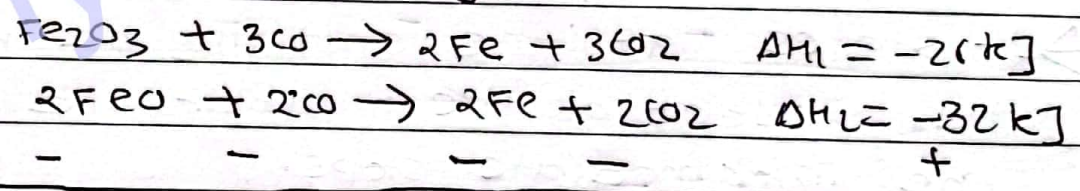 Fe2O3 + 3CO → 2Fe + 3CO2 ΔH1 = -26 kJ
2FeO + 2CO → 2Fe + 2CO2 ΔH2 = -32 kJ
- - - - +